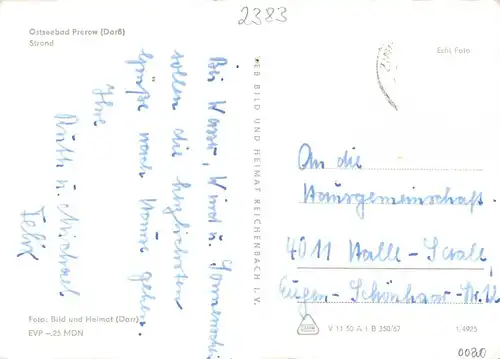 2383
Ostseebad Prerow (Darß)
Strand
Echt Foto
Bei Wasser, Wind u. Sonnenschein
sollen die herzlichsten
Grüße nach Hause gehen.
Ihre
Ruth u. Michael
Felix
VEB BILD UND HEIMAT REICHENBACH I. V.
An die
Hausgemeinschaft
4011 Halle-Saale
Eugen-Schönhaar-Str. 12
Foto: Bild und Heimat (Darr)
EVP -.25 MDN
V 11 50 A 1 B 350/67
1/4925
0020